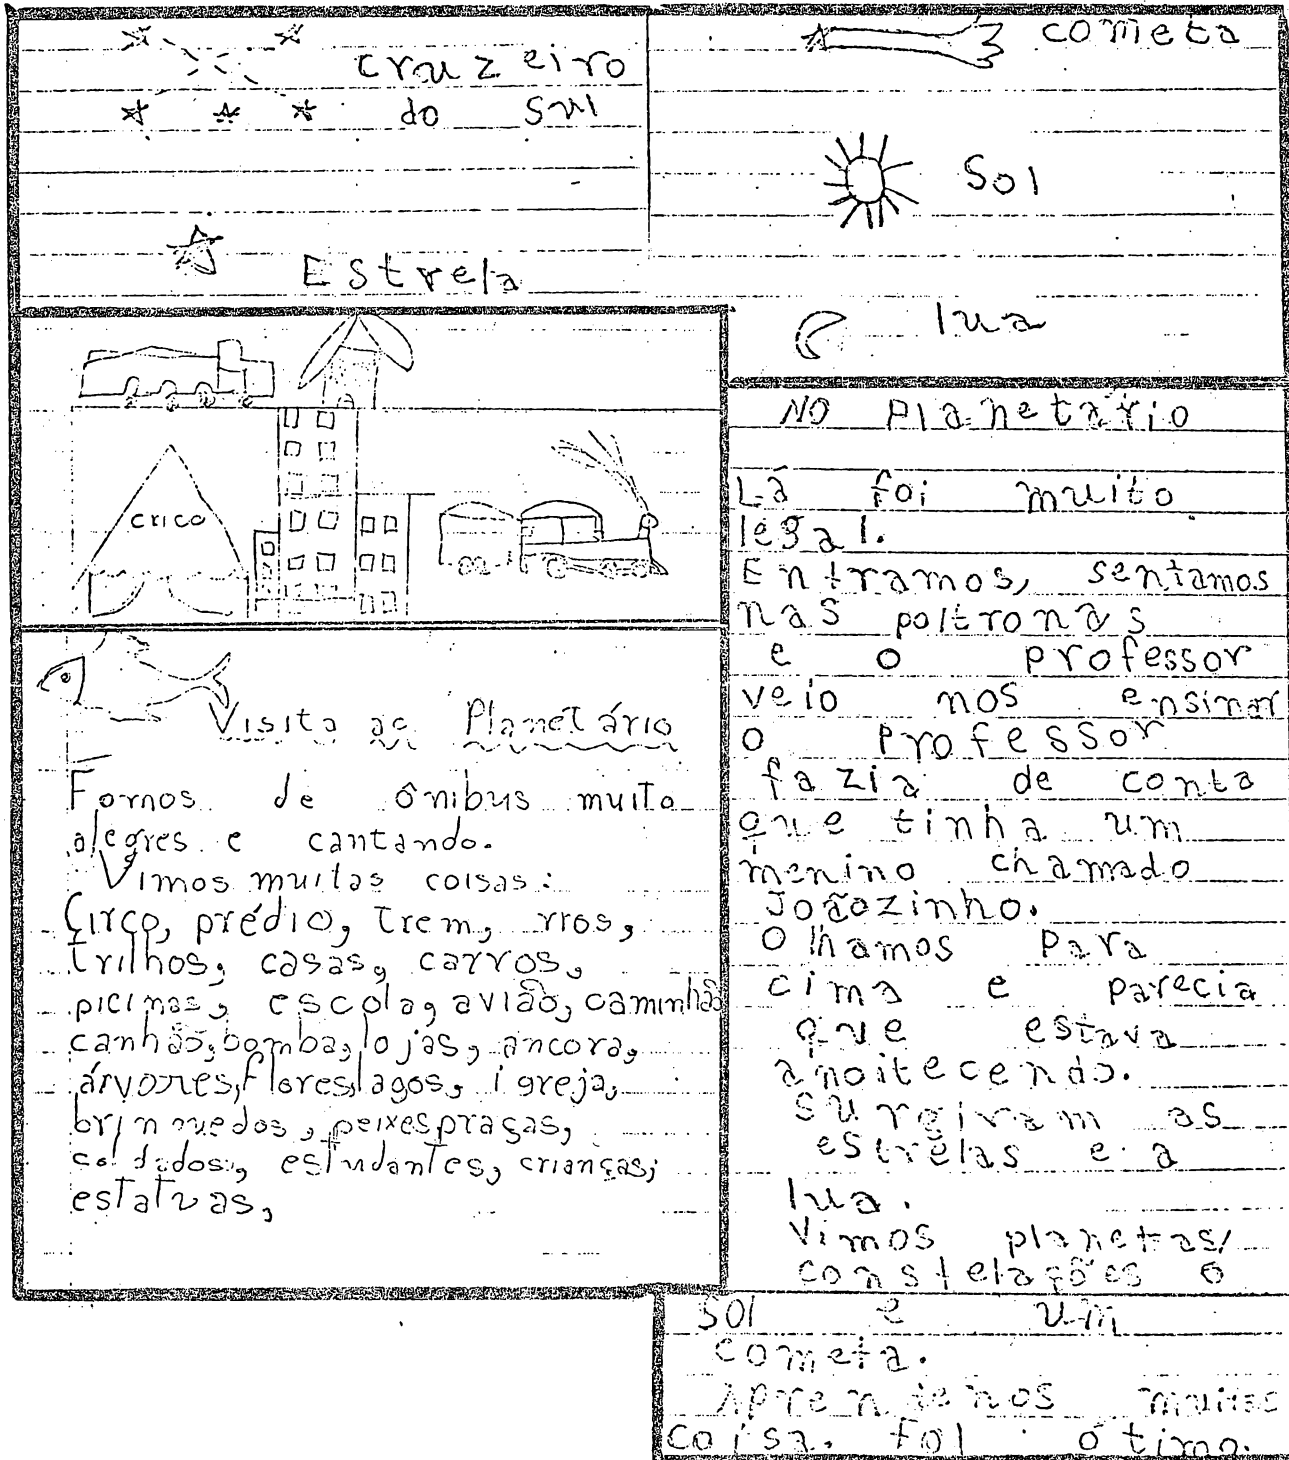 cruzeiro
do sul
Estrela
cometa
Sol
lua
crico
Visita ao Planetário
Fomos de ônibus muito
alegres e cantando.
Vimos muitas coisas:
Circo, prédio, trem, rios,
trilhos, casas, carros,
picinas, escola, avião, caminhão
canhão, bomba, lojas, ancora,
árvores, flores, lagos, igreja,
brinquedos, peixes praças,
coldados, estudantes, crianças,
estatuas,
NO Planetário
Lá foi muito
legal.
Entramos, sentamos
nas poltronas
e o professor
veio nos ensinar
o professor
fazia de conta
que tinha um
menino chamado
Joãozinho.
Olhamos para
cima e parecia
que estava
anoitecendo.
surgiram as
estrelas e a
lua.
Vimos planetas,
constelações o
sol e um
cometa.
Aprendemos muitas
coisa. foi ótimo.